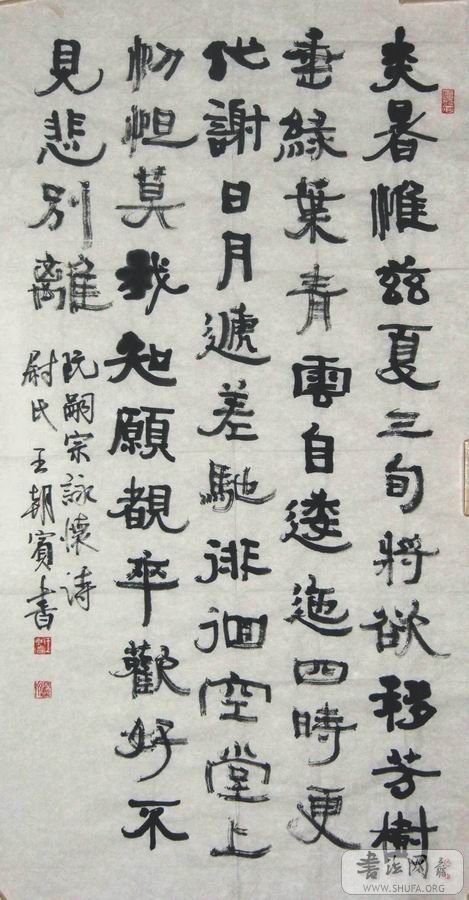 炎暑惟兹夏三旬將欲移芳樹
垂緑葉青雲自逶迤四時更
代謝日月遞差馳徘徊空堂上
忉怛莫我知願覩卒歡好不
見悲別離
阮嗣宗詠懷诗
尉氏王朝賓書
書法网
WWW.SHUFA.ORG